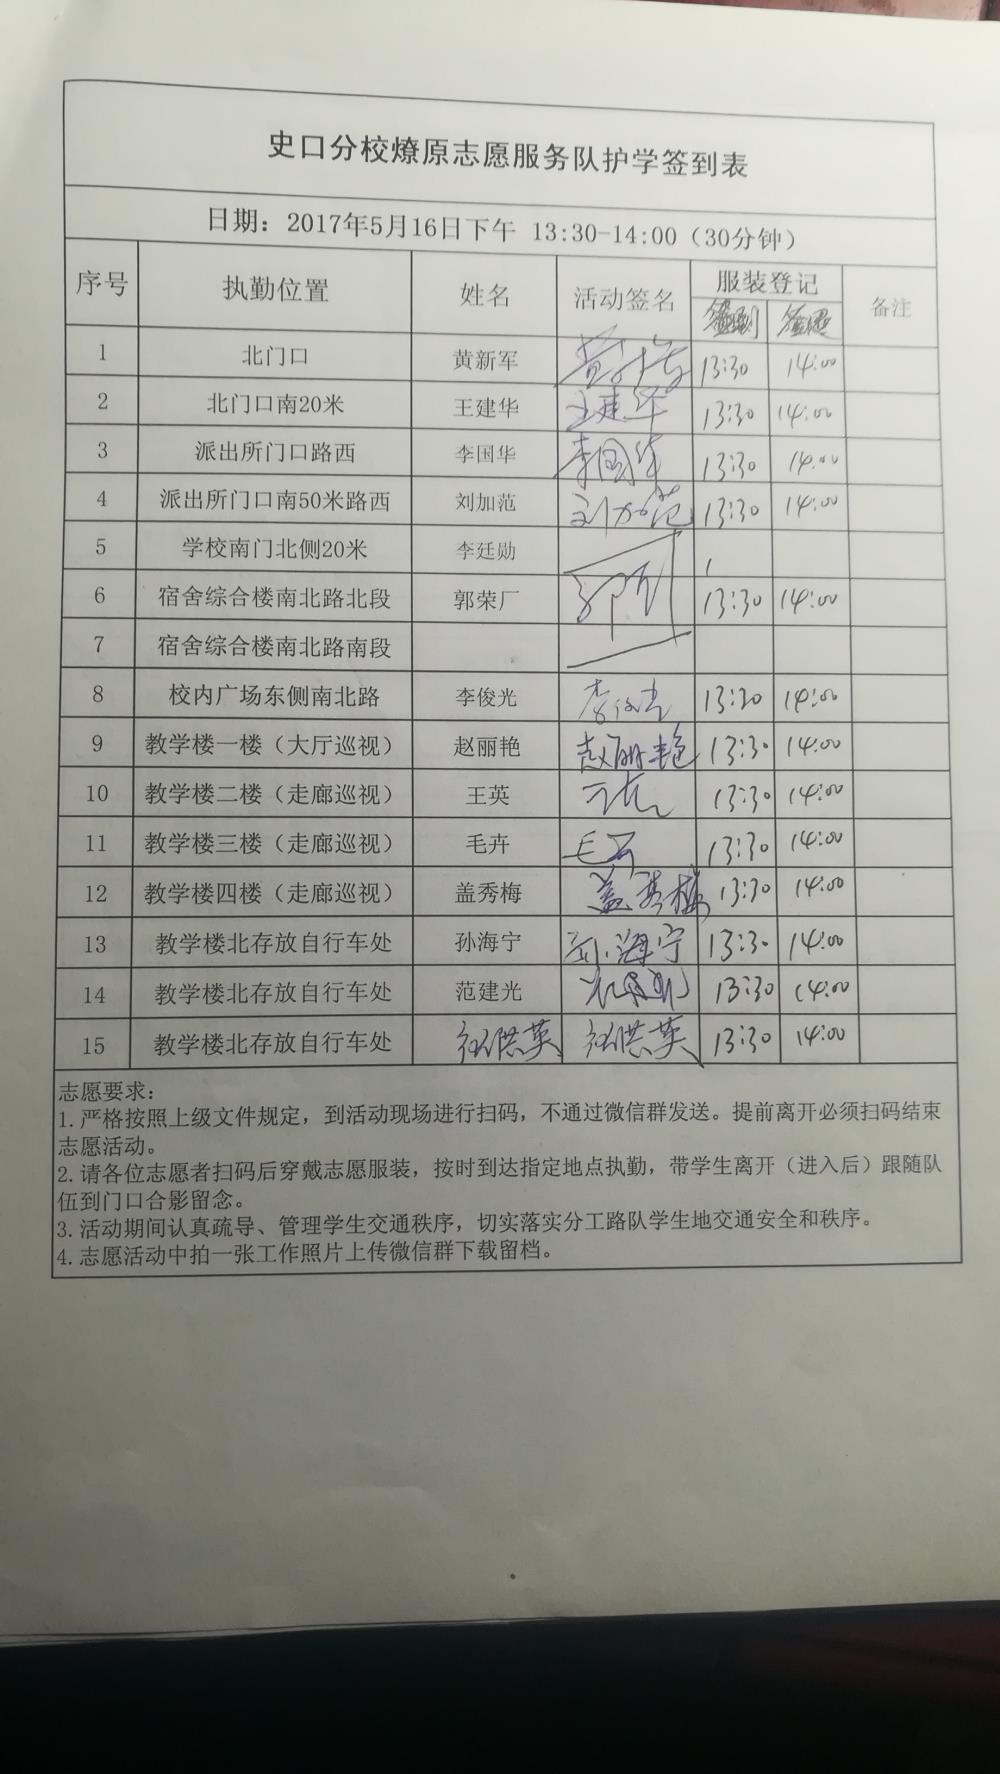 史口分校燎原志愿服务队护学签到表
日期：2017年5月16日下午 13:30-14:00（30分钟）
序号 执勤位置 姓名 活动签名 服装登记 备注
签到 签退
1 北门口 黄新军 13:30 14:00
2 北门口南20米 王建华 王建华 13:30 14:00
3 派出所门口路西 李国华 李国华 13:30 14:00
4 派出所门口南50米路西 刘加范 刘加范 13:30 14:00
5 学校南门北侧20米 李廷勋
6 宿舍综合楼南北路北段 郭荣厂 13:30 14:00
7 宿舍综合楼南北路南段
8 校内广场东侧南北路 李俊光 李俊光 13:30 14:00
9 教学楼一楼（大厅巡视） 赵丽艳 赵丽艳 13:30 14:00
10 教学楼二楼（走廊巡视） 王英 13:30 14:00
11 教学楼三楼（走廊巡视） 毛卉 毛卉 13:30 14:00
12 教学楼四楼（走廊巡视） 盖秀梅 盖秀梅 13:30 14:00
13 教学楼北存放自行车处 孙海宁 孙海宁 13:30 14:00
14 教学楼北存放自行车处 范建光 13:30 14:00
15 教学楼北存放自行车处 13:30 14:00
志愿要求：
1.严格按照上级文件规定，到活动现场进行扫码，不通过微信群发送。提前离开必须扫码结束
志愿活动。
2.请各位志愿者扫码后穿戴志愿服装，按时到达指定地点执勤，带学生离开（进入后）跟随队
伍到门口合影留念。
3.活动期间认真疏导、管理学生交通秩序，切实落实分工路队学生地交通安全和秩序。
4.志愿活动中拍一张工作照片上传微信群下载留档。